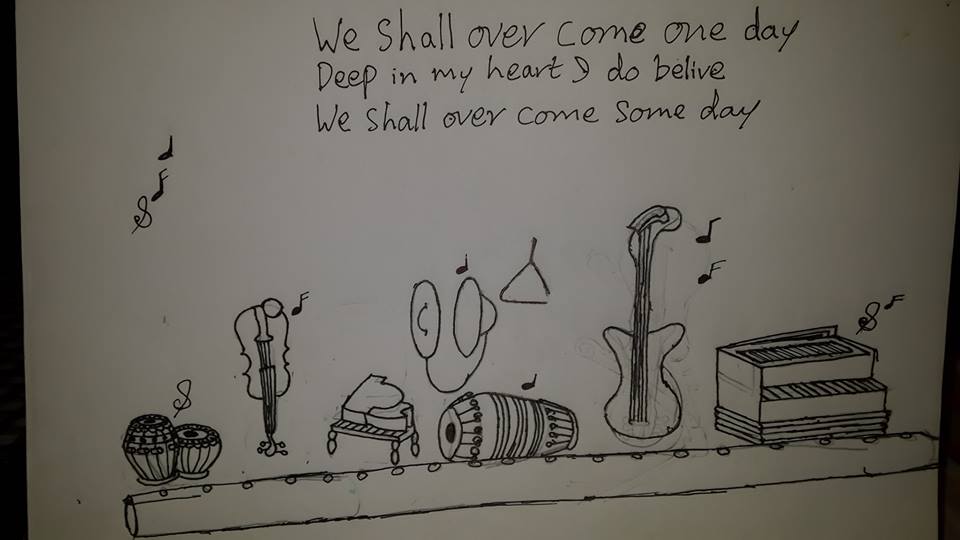 We Shall over come one day
Deep in my heart I do belive
We Shall over come Some day